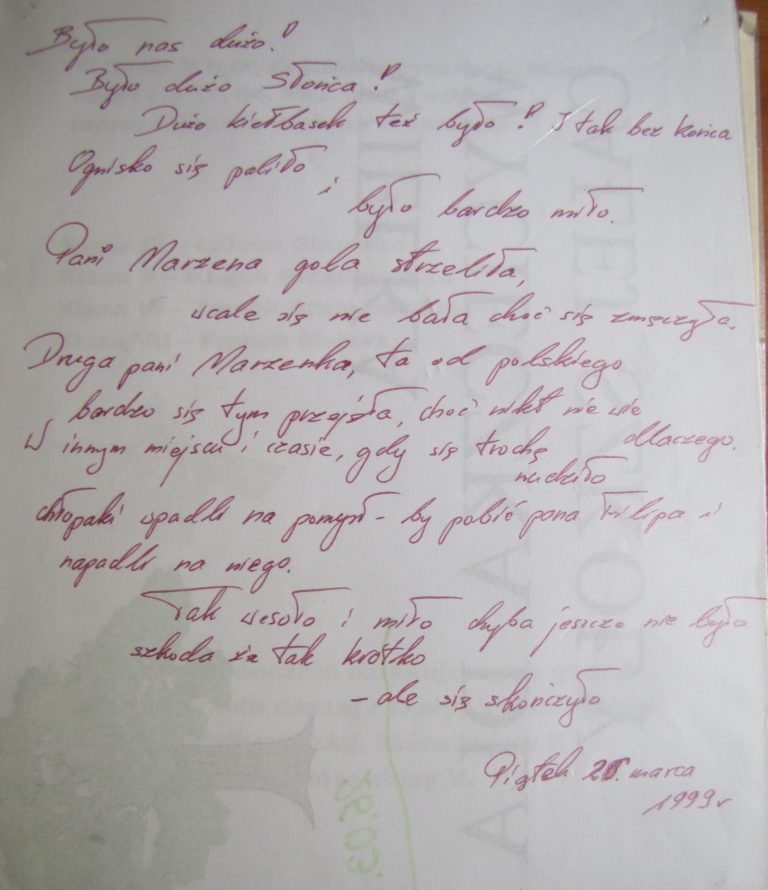 Było nas dużo!
Było dużo słońca!
Dużo kiełbasek też było! I tak bez końca
Ognisko się paliło
i
było bardzo miło.
Pani Marzena gola strzeliła,
wcale się nie bała choć się zmęczyła.
Druga pani Marzenka, ta od polskiego
bardzo się tym przejęła, choć nikt nie wie
dlaczego.
W innym miejscu i czasie, gdy się trochę
nudziło
chłopaki wpadli na pomysł - by pobić pana Filipa i
napadli na niego.
Tak wesoło i miło chyba jeszcze nie było
szkoda że tak krótko
- ale się skończyło
Piątek 26. marca
1999r
26.03.